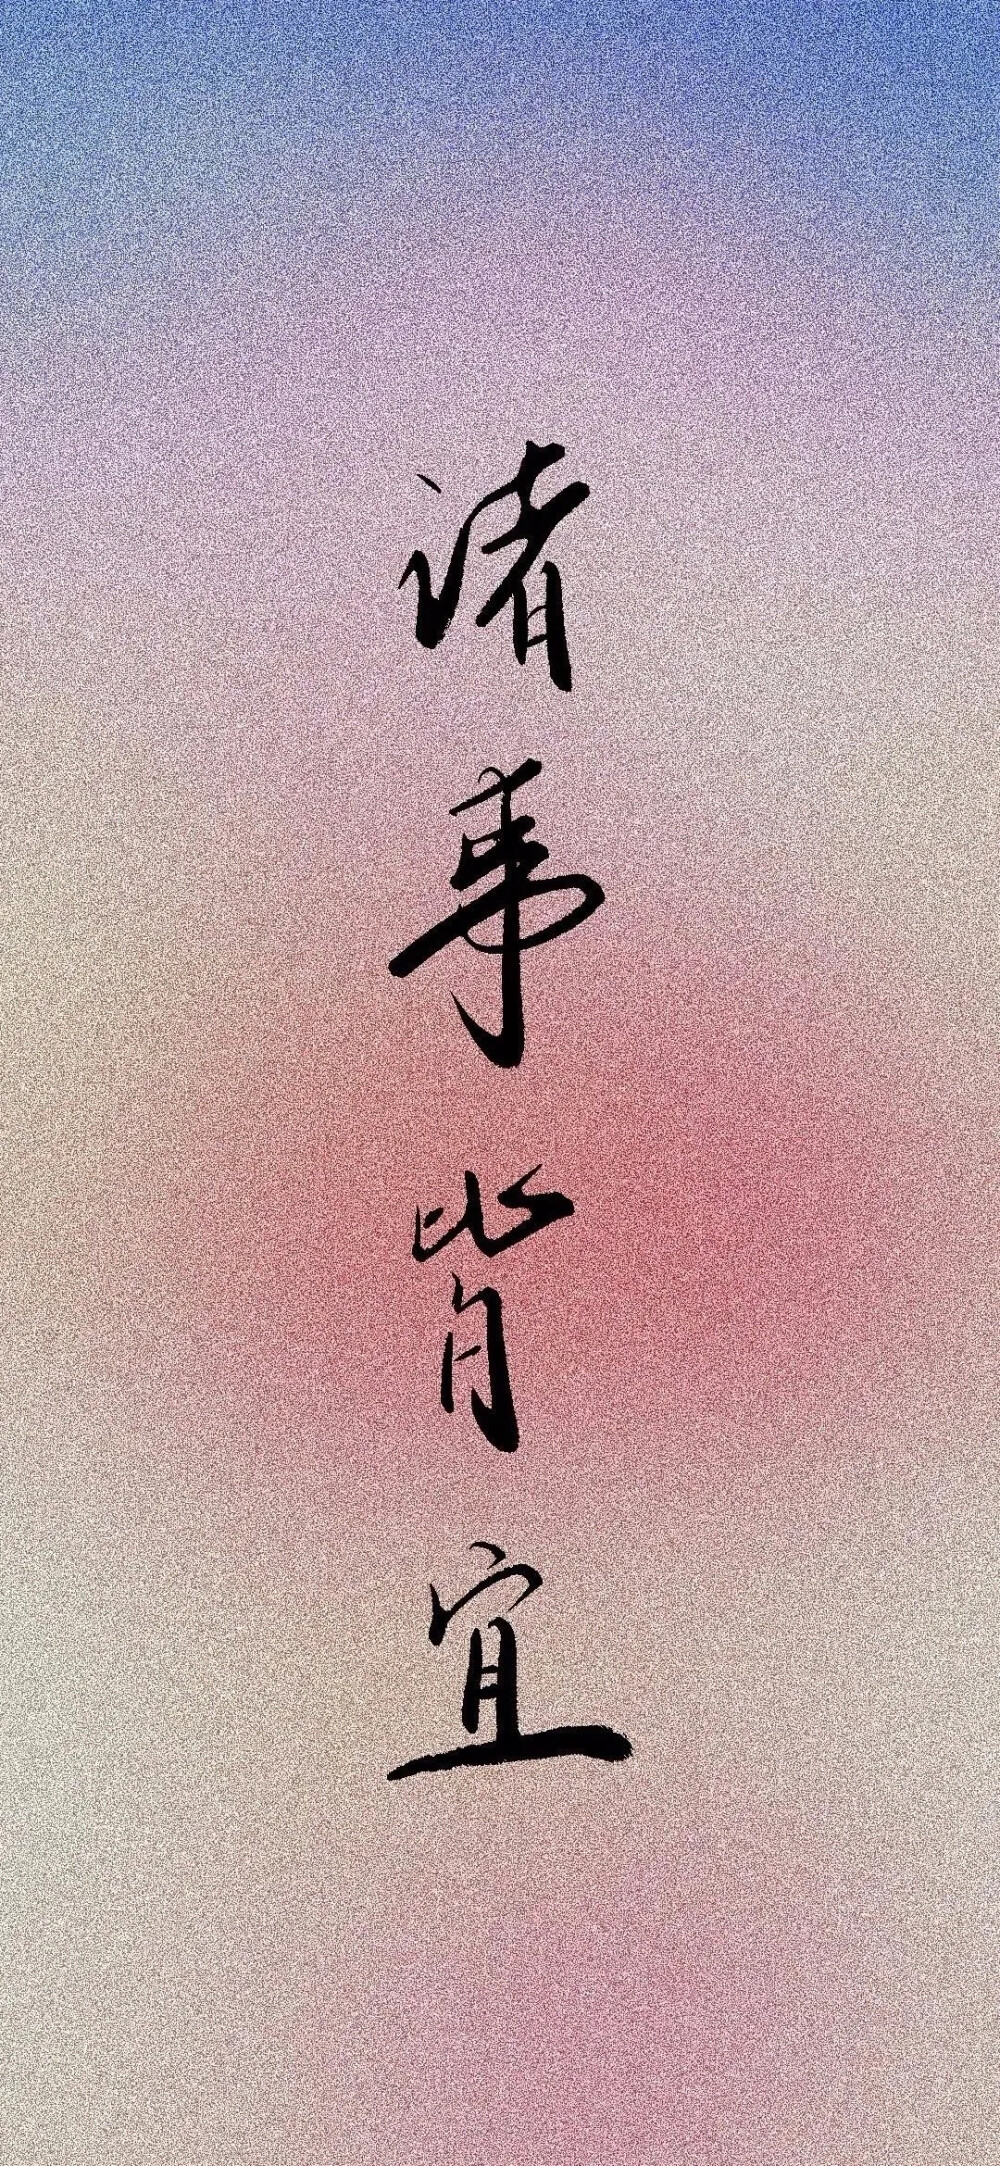 诸事皆宜